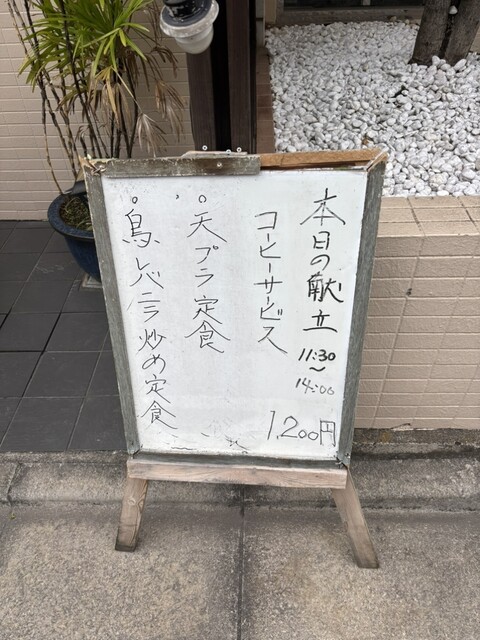 本日の献立
11:30
〜
14:00
コーヒーサービス
1,200円
°天プラ定食
°鳥レバニラ炒め定食